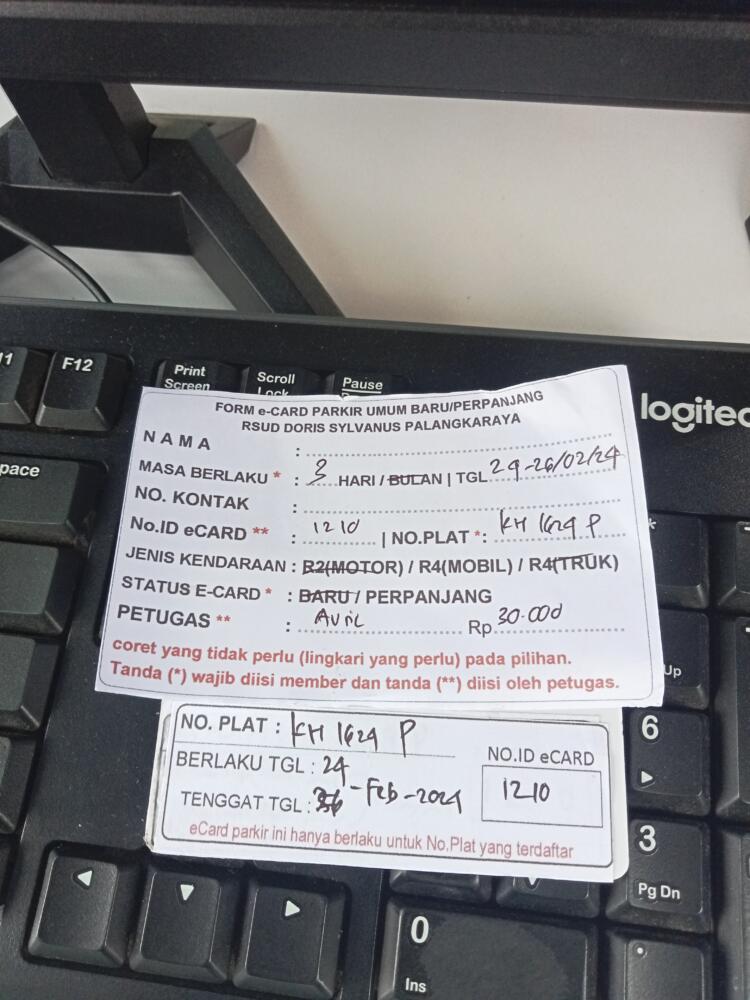 11 F12 Print Screen Scroll Lock Pause
logitec
pace
FORM e-CARD PARKIR UMUM BARU/PERPANJANG
RSUD DORIS SYLVANUS PALANGKARAYA
NAMA :
MASA BERLAKU * : 3 HARI / BULAN | TGL 24-26/02/24
NO. KONTAK :
No.ID eCARD ** : 1210 | NO.PLAT *: KH 1624 P
JENIS KENDARAAN : R2(MOTOR) / R4(MOBIL) / R4(TRUK)
STATUS E-CARD * : BARU / PERPANJANG
PETUGAS ** : Avril Rp 30.000
coret yang tidak perlu (lingkari yang perlu) pada pilihan.
Tanda (*) wajib diisi member dan tanda (**) diisi oleh petugas.
Up
NO. PLAT : KH 1624 P
NO.ID eCARD
BERLAKU TGL : 24
1210
TENGGAT TGL : - Feb - 2024
eCard parkir ini hanya berlaku untuk No.Plat yang terdaftar
6
3
Pg Dn
0
Ins